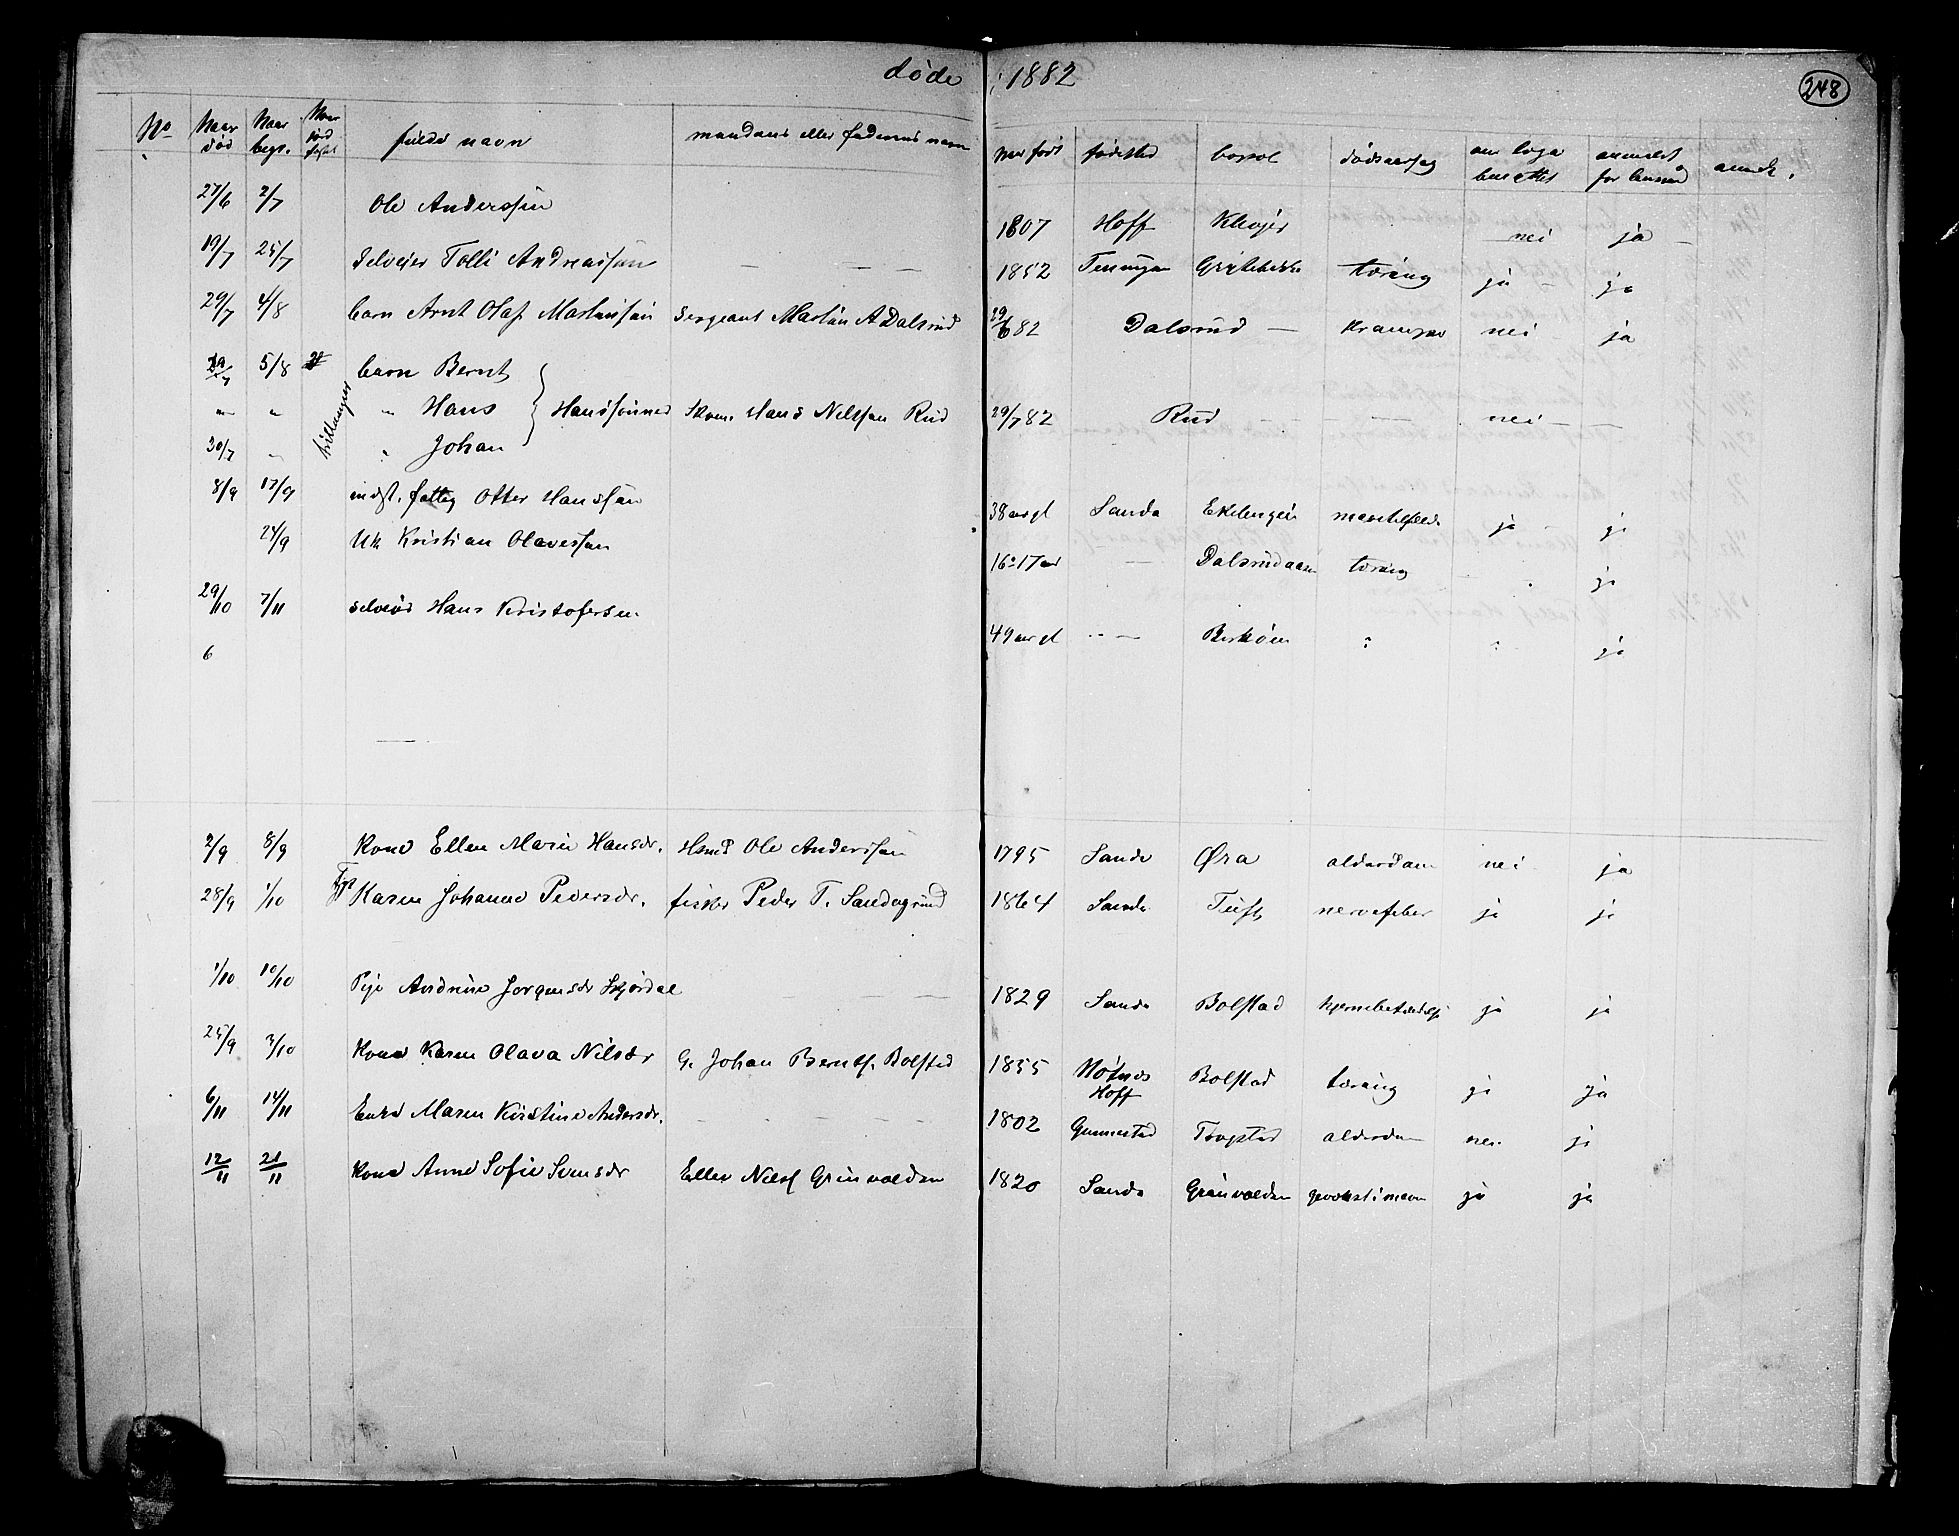 døde i 1882
248
No Naar død Naar begr. fulde navn mandens eller faderens navn naar født fødested bopæl dødsaarsag om læge benyttet anmeldt for lensmd anmk.
27/6 2/7 Ole Anderssen 1807 Hoff nei ja
19/7 25/7 Selveier Andreassen 1852 tæring ja ja
29/7 4/8 barn Arnt Olaf Martinsen Sergeant Martin A Dalsrud 29/6 82 Dalsrud krampe nei ja
29/7 5/8 barn Bernt
trillinger
" " " Hans Hanssønner Hans Nilssen Rud 29/7 82 Rud nei
30/7 " " Johan
8/9 17/9 indst. fattig Otter Hanssen 38 aar gl Sande ja ja
24/9 Uk Kristian Olavessen 16 a 17 aar Dalsrudaasen tæring " ja
29/10 7/11 selveier Hans Kristofersen. 49 aar gl " " " ja
6
2/9 8/9 Kone Ellen Marie Hansdr. Hmd Ole Anderssen 1795 Sande Øra alderdom nei ja
28/9 1/10 Karen Johanne Pedersdr. fisker Peder T. Sandegrund 1864 Sande Tuft nervefeber ja ja
1/10 10/10 Pige Andrine Jørgensdr Skjørdal 1829 Sande Bolstad hjernebetændelse ja ja
25/9 3/10 Kone Karen Olava Nilsdr G. Johan Bernts. Bolstad 1855 Hoff Bolstad tæring ja ja
6/11 14/11 Enke Maren Kristine Andersdr. 1802 Gunnestad alderdom nei ja
12/11 21/11 Kone Anne Sofie Svensdr Ellef Nilss Grinvolden 1820 Sande Grinvolden ja ja